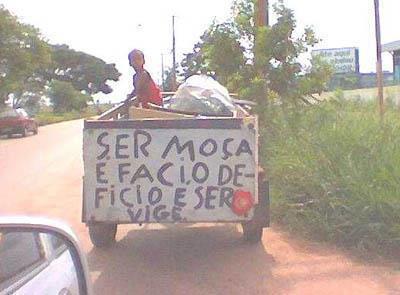 SER MOÇA
E FACIO DE-
FICIO E SER
VIGE